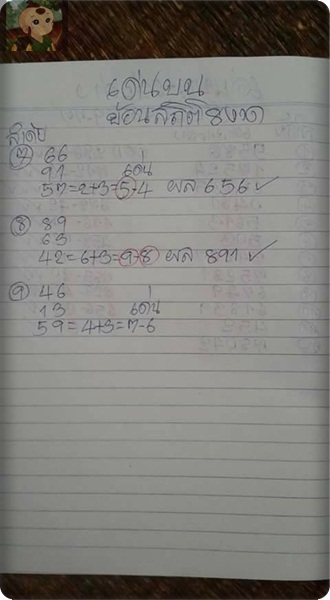 เด่นบน
ย้อนสถิติ8งวด
ลำดับ
⑦ 66
91 เด่น
57=2+3=5-4 ผล 656✓
⑧ 89
63
42=6+3=9-8 ผล 891✓
⑨ 46
13 เด่น
59=4+3=7-6